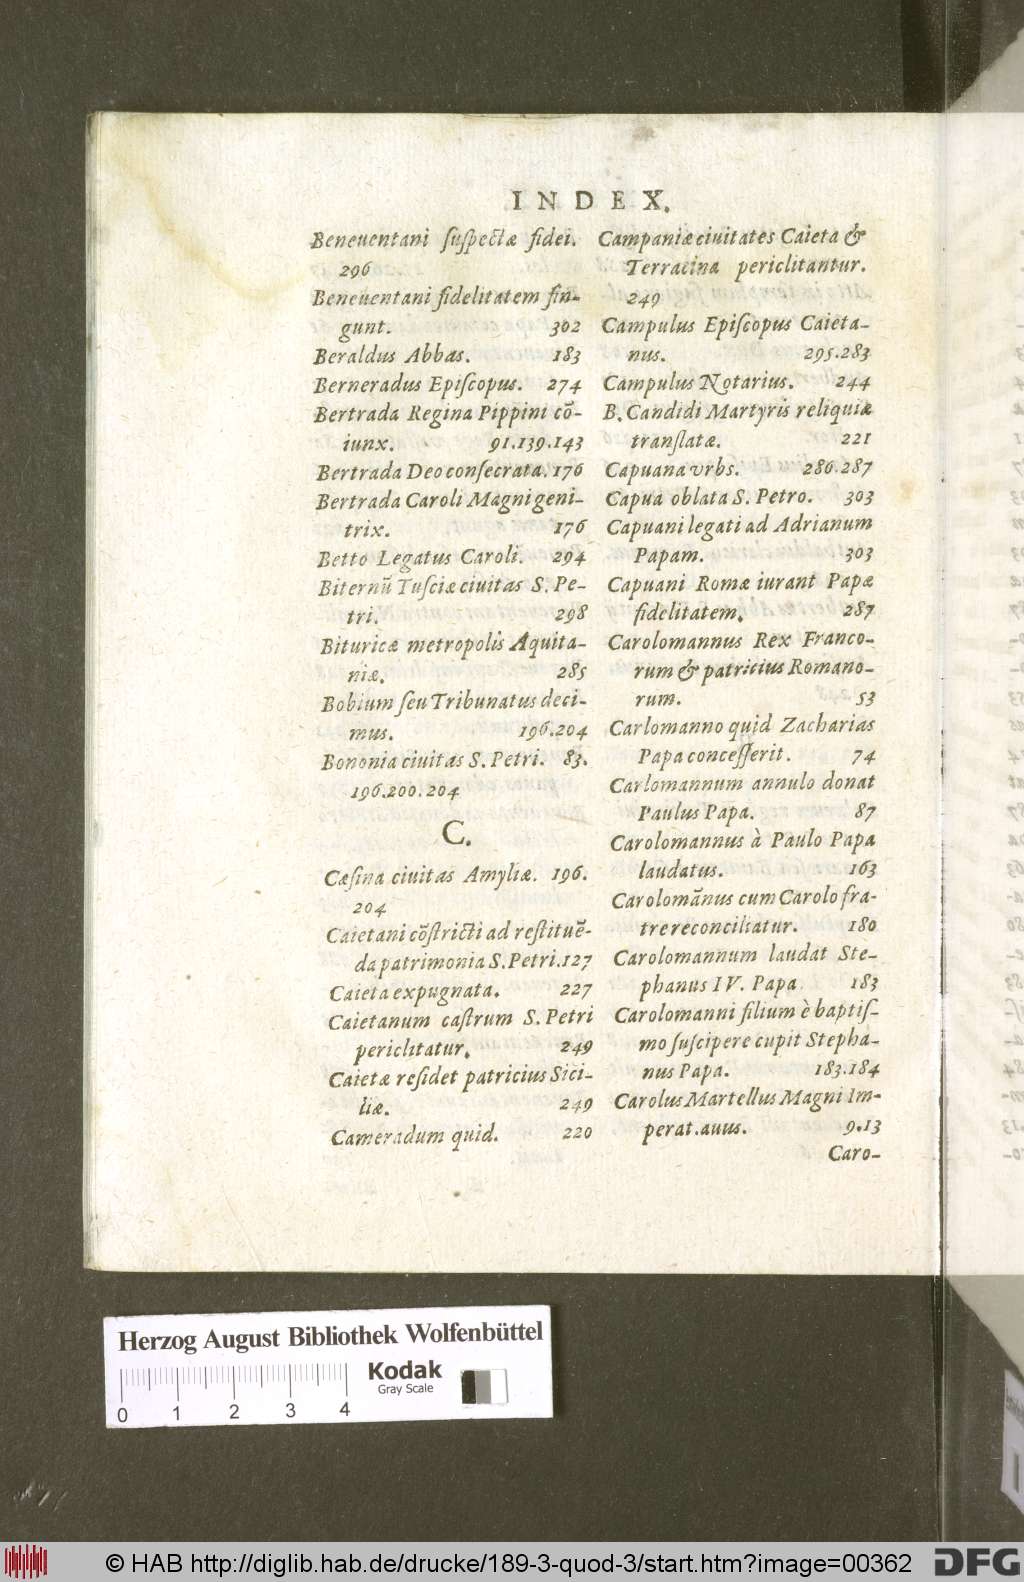 INDEX.
Beneuentani ſuſpectæ fidei.
296
Beneuentani fidelitatem fin-
gunt. 302
Beraldus Abbas. 183
Berneradus Epiſcopus. 274
Bertrada Regina Pippini cō-
iunx. 91.139.143
Bertrada Deo conſecrata. 176
Bertrada Caroli Magni geni-
trix. 176
Betto Legatus Caroli. 294
Biternū Tuſciæ ciuitas S. Pe-
tri. 298
Bituricæ metropolis Aquita-
niæ. 285
Bobium ſeu Tribunatus deci-
mus. 196.204
Bononia ciuitas S. Petri. 83.
196.200.204
C.
Cæſina ciuitas Amyliæ. 196.
204
Caietani cōſtricti ad reſtituē-
da patrimonia S. Petri. 127
Caieta expugnata. 227
Caietanum caſtrum S. Petri
periclitatur. 249
Caietæ reſidet patricius Sici-
liæ. 249
Cameradum quid. 220
Campaniæ ciuitates Caieta &
Terracina periclitantur.
249
Campulus Epiſcopus Caieta-
nus. 295.283
Campulus Notarius. 244
B. Candidi Martyris reliquiæ
tranſlatæ. 221
Capuana vrbs. 286.287
Capua oblata S. Petro. 303
Capuani legati ad Adrianum
Papam. 303
Capuani Romæ iurant Papæ
fidelitatem. 287
Carolomannus Rex Franco-
rum & patricius Romano-
rum. 53
Carlomanno quid Zacharias
Papa conceſſerit. 74
Carlomannum annulo donat
Paulus Papa. 87
Carolomannus à Paulo Papa
laudatus. 163
Carolomānus cum Carolo fra-
tre reconciliatur. 180
Carolomannum laudat Ste-
phanus IV. Papa 183
Carolomanni filium è baptiſ-
mo ſuſcipere cupit Stepha-
nus Papa. 183.184
Carolus Martellus Magni Im-
perat. auus. 9.13
Caro-
Herzog August Bibliothek Wolfenbüttel
Kodak
Gray Scale
0 1 2 3 4
© HAB http://diglib.hab.de/drucke/189-3-quod-3/start.htm?image=00362
DFG